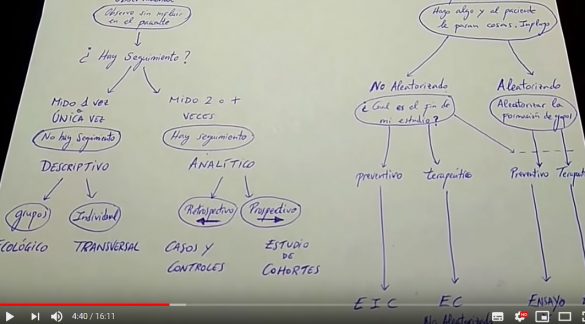 Observo sin influir
en el paciente
¿ Hay Seguimiento ?
Mido 1 vez
o
ÚNICA VEZ
No hay seguimiento
DESCRIPTIVO
grupos
Individual
ECOLÓGICO
TRANSVERSAL
MIDO 2 o +
VECES
Hay seguimiento
ANALÍTICO
Retrospectivo
Prospectivo
CASOS Y
CONTROLES
ESTUDIO
DE
COHORTES
Hago algo y al paciente
le pasan cosas. Influyo
No Aleatorizado
¿Cuál es el fin de
mi estudio?
Aleatorizado
Aleatorizar la
formación de grupos
preventivo
terapéutico
Preventivo
Terapéut
E I C
E C
No Aleatorizado
ENSAYO
4:40 / 16:11
HD